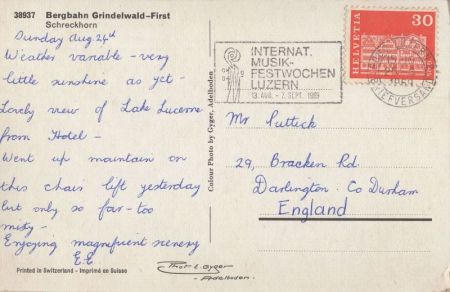 38937 Bergbahn Grindelwald–First
Schreckhorn
Sunday Aug. 24th
Weather variable - very
little sunshine as yet -
Lovely view of Lake Lucerne
from Hotel -
Went up mountain on
this chair lift yesterday
but only so far - too
misty -
Enjoying magnificent scenery
E.E
Printed in Switzerland - Imprimé en Suisse
Colour Photo by Gyger, Adelboden
INTERNAT.
MUSIK-
FESTWOCHEN
LUZERN
13. AUG. - 7. SEPT. 1969
HELVETIA
30
BRIEFVERSAND
Mr Puttick
29, Bracken Rd.
Darlington. Co Durham
England
Gyger
Adelboden